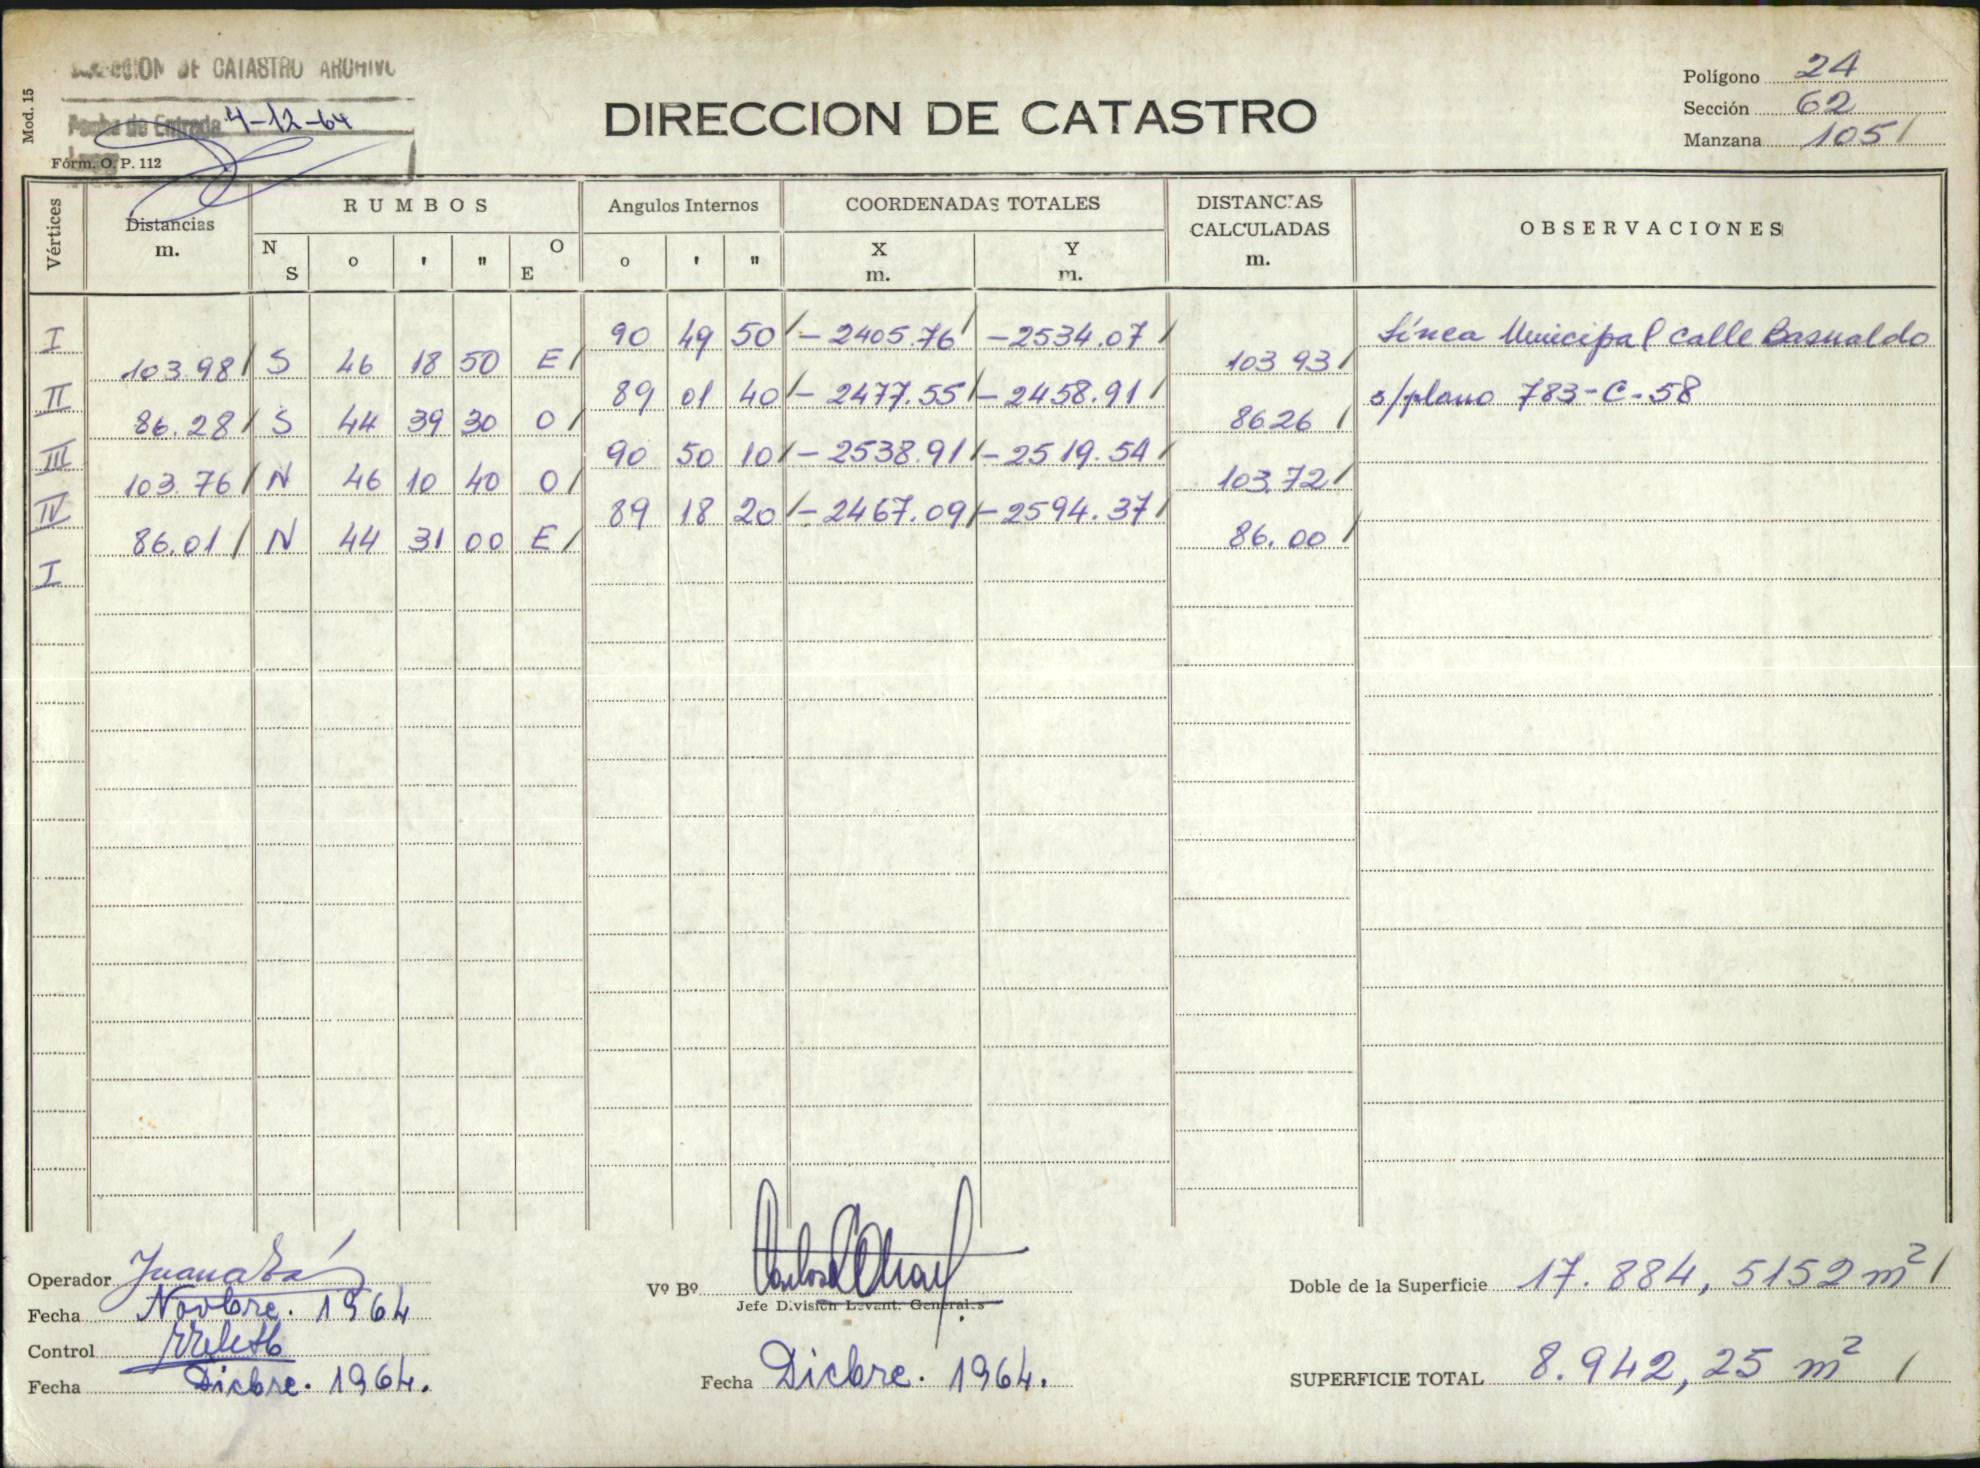 DIRECCION DE CATASTRO ARCHIVO
Fecha de Entrada 4-12-64
Mod. 15
Fórm. O. P. 112
DIRECCION DE CATASTRO
Polígono 24
Sección 62
Manzana 105 /
Vértices
Distancias m.
RUMBOS
Angulos Internos
COORDENADAS TOTALES
DISTANCIAS CALCULADAS m.
OBSERVACIONES
N S o ' " O E
o ' "
X m. Y m.
I 90 49 50 / - 2405.76 / - 2534.07 / Línea Municipal calle Basualdo
103.98 / S 46 18 50 E / 103.93 /
II 89 01 40 / - 2477.55 / - 2458.91 / s/plano 783-C-58
86.28 / S 44 39 30 O / 86.26 /
III 90 50 10 / - 2538.91 / - 2519.54 /
103.76 / N 46 10 40 O / 103.72 /
IV 89 18 20 / - 2467.09 / - 2594.37 /
86.01 / N 44 31 00 E / 86.00 /
I
Operador
Fecha Novbre. 1964
Control
Fecha Dicbre. 1964.
Vº Bº
Jefe División Levant. Generales
Fecha Dicbre. 1964.
Doble de la Superficie 17.884,5152 m² /
SUPERFICIE TOTAL 8.942,25 m² /